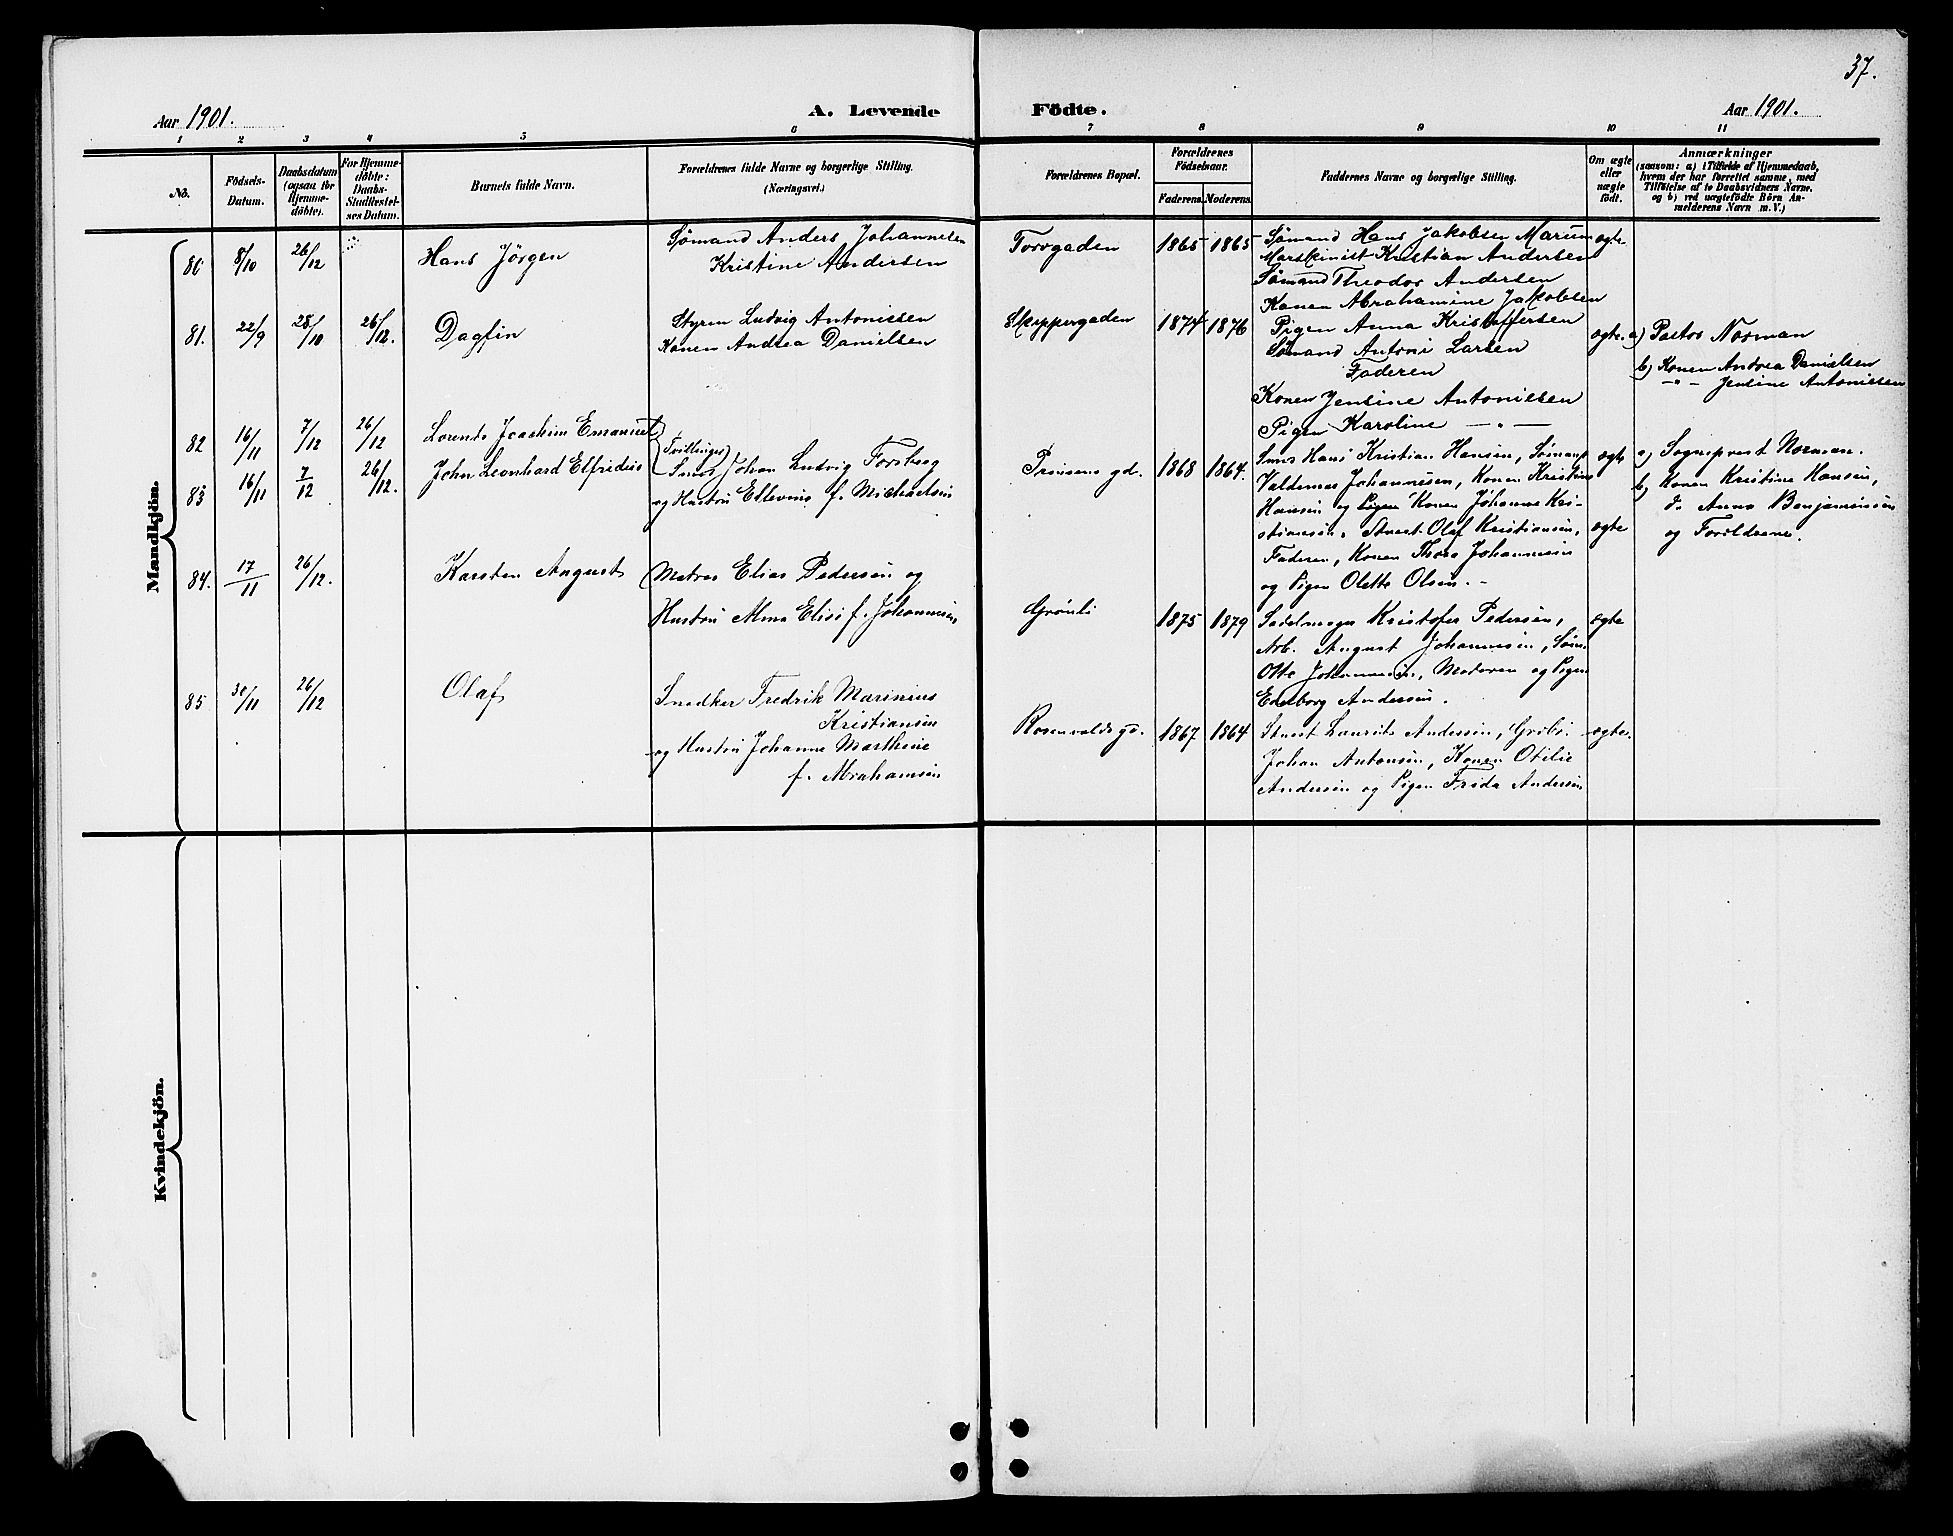 37.
Aar 1901.
A. Levende Födte.
Aar 1901.
1 2 3 4 5 6 7 8 9 10 11
No.
Födsels-Datum.
Daabsdatum (ogsaa for Hjemmedöbte).
For Hjemmedöbte: Daabs-Stadfæstelses Datum.
Barnets fulde Navn.
Forældrenes fulde Navne og borgerlige Stilling. (Næringsvei.)
Forældrenes Bopæl.
Forældrenes Födselsaar.
Faderens. Moderens.
Faddernes Navne og borgerlige Stilling.
Om ægte eller uægte födt.
Anmærkninger
(saasom: a) i Tilfælde af Hjemmedaab, hvem der har forrettet samme, med Tilföielse af to Daabsvidners Navne. og b) ved uægtefödte Börn Anmelderens Navn m. V.)
Mandkjön.
80 8/10 26/12
Hans Jörgen
Sömand Anders Johannesen
Kristine Andersen
Torvgaden 1865 1865
Sömand Hans Jakobsen Marum
Marskinist Kristian Andersen
Sömand Theodor Andersen
Konen Abrahamine Jakobsen
ægte
81. 22/9 28/10 26/12.
Dagfin
Styrm Ludvig Antonissen
Konen Andrea Danielsen
Skippergaden 1874 1876
Pigen Anna Kristoffersen
Sömand Antoni Larsen
Faderen
Konen Jensine Antonissen
Pigen Karoline — " —
ægte. a) Pastor Norman
b) Konen Andrea Danielsen
— " — Jensine Antonissen
82 16/11 7/12 26/12
Lorents Joachim Emanuel
83 16/11 7/12 26/12.
John Leonhard Elfridius
(Tvillinger)
Smed Johan Ludvig Forsberg
og Hustru Ellevine f. Michaelsen
Prinsens gd. 1868 1864.
Smed Hans Kristian Hansen, Sömand
Valdemar Johannesen, Konen Kristine
Hansen og Konen Johanne Kri-
stiansen. Stuert Olaf Kristiansen,
Faderen, Konen Thora Johannesen
og Pigen Olette Olsen. -
ægte
ægte
a) Sogneprest Norman.
b) Konen Kristine Hansen,
do Anna Benjaminsen
og Forældrene.
84. 17/11 26/12.
Karsten August
Matros Elias Pedersen og
Hustru Alma Elise f. Johannesen,
Grönli 1875 1879
Sadelmager Kristofer Pedersen,
Arb. August Johannesen, Söm.
Otto Johannesen, Moderen og Pigen
Edeborg Andersen.
ægte
85 30/11 26/12
Olaf
Snedker Fredrik Marinius
Kristiansen
og Hustru Johanne Marthine
f. Abrahamsen
Rosenvolds gd. 1867 1864
Stuert Laurits Andersen, Grosi.
Johan Antonsen, Konen Otilie
Andersen og Pigen Frida Andersen
ægte.
Kvindekjön.